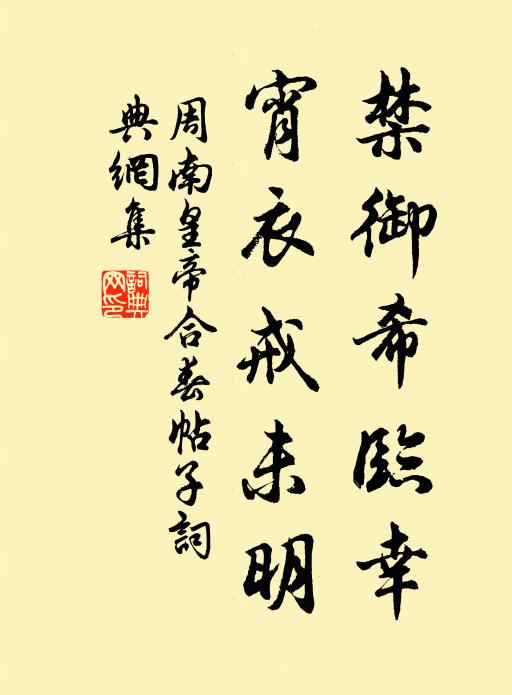 禁御希臨幸
宵衣戒未明
周南皇帝合春帖子詞
典網集
詞典網印